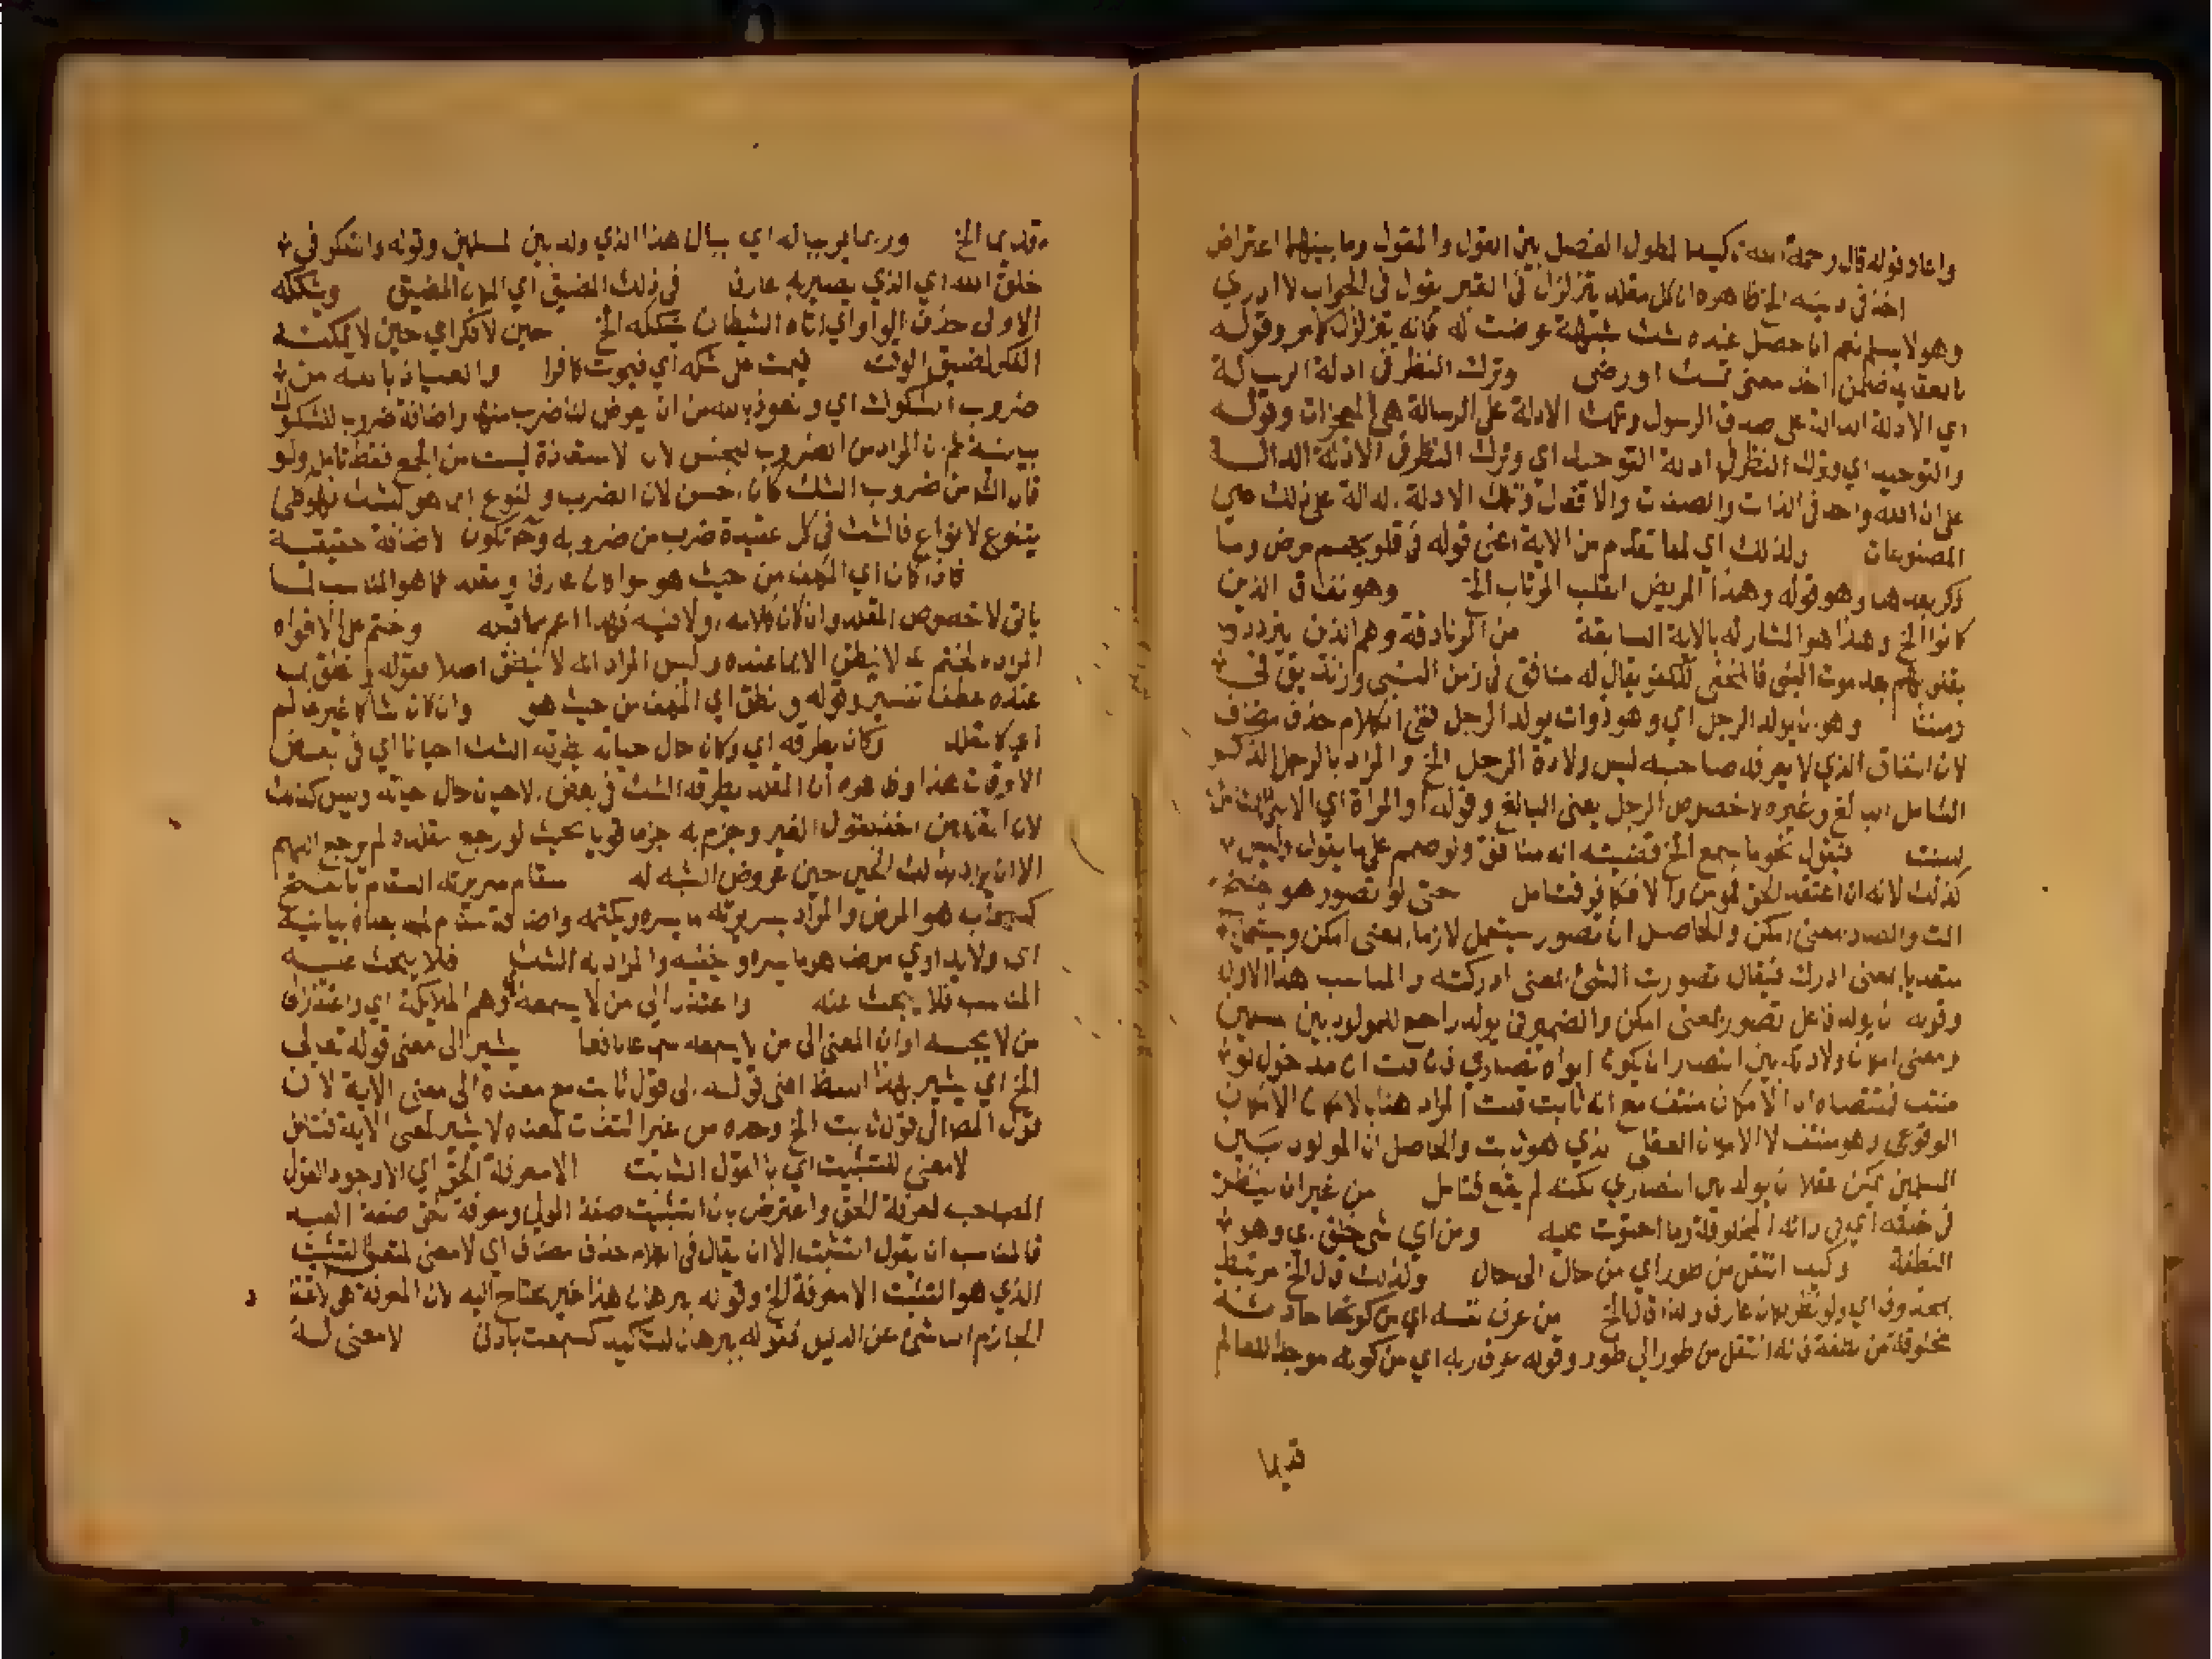 واعاد قوله قال رحمة الله تأكيدا لطول الفصل بين القول والمقول وما بينهما اعتراض
اخذ في دينه الخ ظاهره ان كل مقلد يتزلزل في القبر يقول في الجواب لا ادري
وهو لا يسلم نعم ان حصل عنده شك شبهة عرضت له فانه يتزلزل كما مر وقوله
ضمن اخذ معنى تمسك او رضى وترك النظر في ادلة الرسالة
اي الادلة الدالة على صدق الرسول وتلك الادلة على الرسالة هي المعجزات وقوله
والتوحيد اي وترك النظر في ادلة التوحيد اي وترك النظر في الادلة الدالة
على ان الله واحد في الذات والصفات والافعال وتلك الادلة الدالة على ذلك هي
المصنوعات ولذلك اي لما تقدم من الاية اعنى قوله في قلوبهم مرض وما
ذكر بعدها وهو قوله وهذا المريض القلب المرتاب الخ وهو نفاق الذين
كانوا الخ وهذا هو المشار له بالاية السابقة من الزنادقة وهم الذين يترددون
بقلوبهم بعد موت النبي فالمخفى للكفر يقال له منافق في زمن النبي وزنديق في
زمننا وهو ان يولد الرجل اي وهو ذوات يولد الرجل ففي الكلام حذف مضاف
لان النفاق الذي لا يعرفه صاحبه ليس ولادة الرجل الخ والمراد بالرجل الذكر
الشامل البالغ وغيره لا خصوص الرجل يعنى البالغ وقوله او المراة اي الانثى
فيقول نحو ما يسمع الخ قضيته انه منافق ولو صمم على ما يقول وليس
كذلك لانه ان اعتقد الحق لمؤمن والا فكافر فتامل حتى لو تصور هو
والصاد بمعنى امكن والحاصل ان تصور يستعمل لازما بمعنى امكن ويستعمل
متعديا بمعنى ادرك فيقال تصورت الشئ بمعنى ادركته والمناسب هنا الاول
وقوله ان يولد فاعل تصور بمعنى امكن والضمير في يولد راجع للمولود بين مسلمين
ومعنى امكان ولادته بين النصارى ان يكون ابواه نصارى فان قلت ان مدخول لو
منتف فمقتضاه ان الامكان منتف مع انه ثابت قلت المراد هنا بالامكان الامكان
الوقوعي وهو منتف لا الامكان العقلي الذي هو ثابت والحاصل ان المولود بين
المسلمين يمكن عقلا ان يولد بين النصارى لكنه لم يقع فتامل من غير ان ينظر
في خلقه اي في ذاته المخلوقة وما احتوت عليه ومن اي شئ خلق اي وهو
النطفة وكيف انتقل من طور اي من حال الى حال ولذلك قال الخ مرتبط
بمحذوف اي ولو نظر لكان عارفا ولذا قال الخ من عرف نفسه اي من كونها حادثة
مخلوقة من نطفة فانه انتقل من طور الى طور وقوله عرف ربه اي من كونه موجدا للعالم
قديما
قديما الخ وربما يرى بباله اي ببال هذا الذي ولد بين المسلمين وقوله والتفكر في
خلق الله اي الذي يصير به عارفا في ذلك المضيق اي المكان المضيق ويشككه
الاولى حذف الواو اي اتاه الشيطان يشككه الخ حين لا فكر اي حين لا يمكنه
الفكر لضيق الوقت فيموت على شكه اي فيموت كافرا والعياذ بالله من
ضروب الشكوك اي ونعوذ بالله من ان يعرض لنا ضرب منها واضافة ضروب للشكوك
بيانية ثم ان المراد من الضروب الجنس لان الاستعاذة ليست من الجمع فقط تامل ولو
قال الله من ضروب الشك كان احسن لان الضرب والنوع انما هو للشك فهو كلي
يتنوع لانواع فالشك في كل عقيدة ضرب من ضروبه وح تكون الاضافة حقيقية
فاذا كان اي المكلف من حيث هو سوا كان عارفا او مقلدا كما هو المناسب لما
ياتى لا خصوص المقلد وان كان كلامه اولا فيه فهذا اعم مما قبله وختم على الافواه
المراد بالختم انه لا ينطق الا بما عنده وليس المراد انه لا ينطق اصلا فقوله ونطق بما
عنده عطف تفسير وقوله ونطق اي المكلف من حيث هو وان كان شاكا غير عالم
اي كالمقلد وكان يطرقه اي وكان حال حياته يطرقه الشك احيانا اي في بعض
الاوقات هذا وظاهره ان المقلد يطرقه الشك في بعض الاحيان حال حياته وليس كذلك
لان المقلد من اخذ بقول الغير وجزم به جزما قويا بحيث لو رجع مقلده لم يرجع اللهم
الا ان يراد بذلك الحين حين عروض الشبه له سقام سريرته السقام بالفتح
كسحاب هو المرض والمراد بسريرته ما يسره ويكتمه واضافة سقام لما بعده بيانية
اي ولا يداوي مرض هو ما يسره ويخفيه والمراد به الشك فلا يبحث عنه
المناسب فلا يبحث عنه واعتذر الى من لا يسمعه وهم الملايكة اي واعتذر الى
من لا يجيبه او ان المعنى الى من لا يسمعه سماعا نافعا يشير الى معنى قوله تعالى
الخ اي يشير بهذا اللفظ اعنى قوله الى قول ثابت مع معناه الى معنى الاية لان
قول المص الى قول ثابت الخ وحده من غير التفات لمعناه لا يشير لمعنى الاية فتفطن
لا معنى للتثبيت اي بالقول الثابت الا معرفة الحق اي الا وجود القول
المصاحب لمعرفة الحق واعترض بان التثبيت صفة المولى ومعرفة الحق صفة العبد
فالمناسب ان يقول التثبت الا ان يقال في الكلام حذف مضاف اي لا معنى لمتعلق التثبيت
الذي هو التثبت الا معرفة الخ وقوله ببرهان هذا غير محتاج اليه لان المعرفة هي
الجازم الناشئ عن الدليل فقوله ببرهان للتاكيد كسمعت باذنى لا معنى له